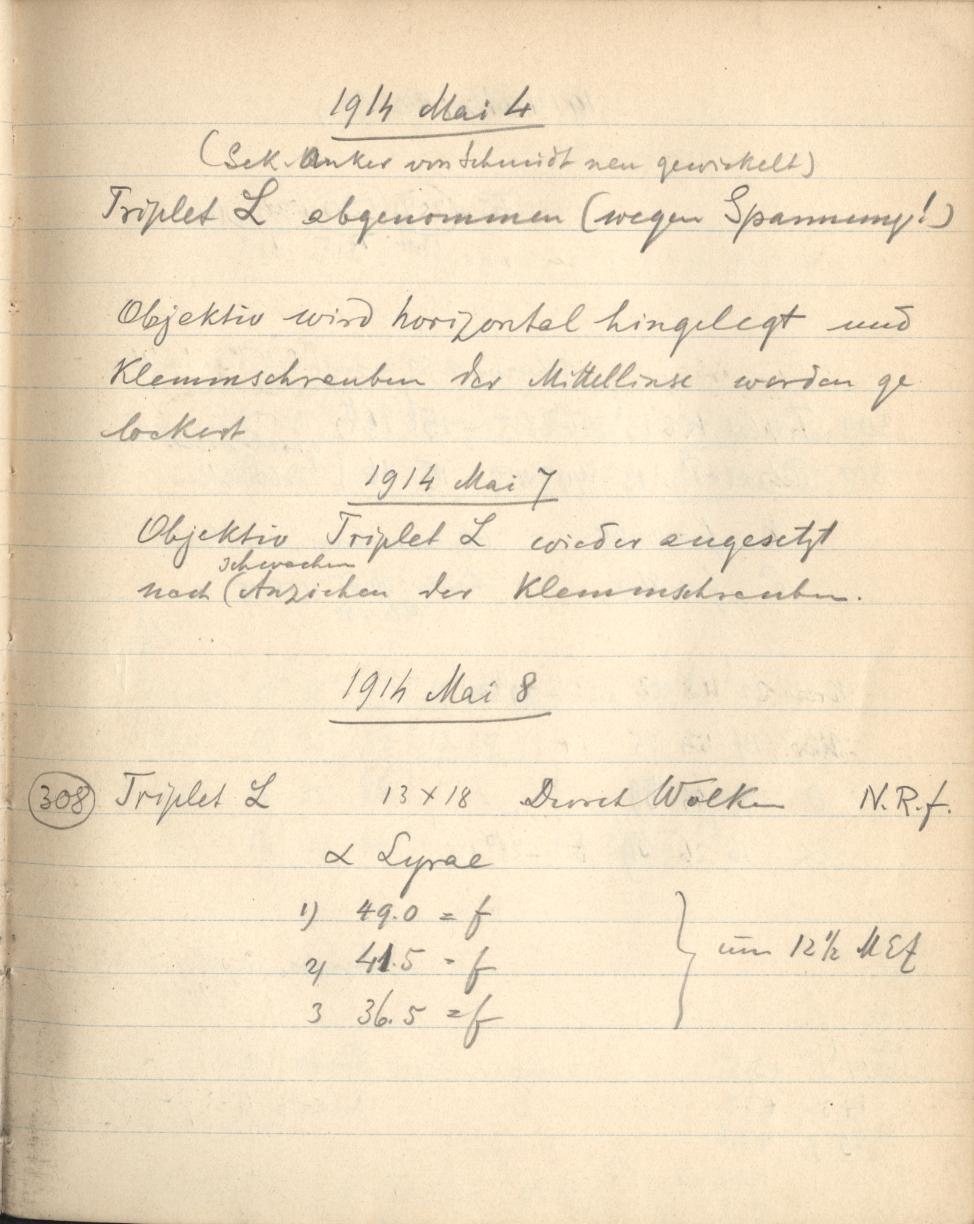 1914 Mai 4
(Sek. Anker von Schmidt neu gewickelt)
Triplet L abgenommen (wegen Spannung!)
Objektiv wird horizontal hingelegt und
Klemmschrauben der Mittellinse werden ge
lockert
1914 Mai 7
Objektiv Triplet L wieder angesetzt
schwachem
nach (Anziehen der Klemmschrauben.
1914 Mai 8
308 Triplet L 13 × 18 Durch Wolken N.R.f.
α Lyrae
1) 49.0 = f
2) 41.5 = f
3 36.5 = f
um 12½ MEZ